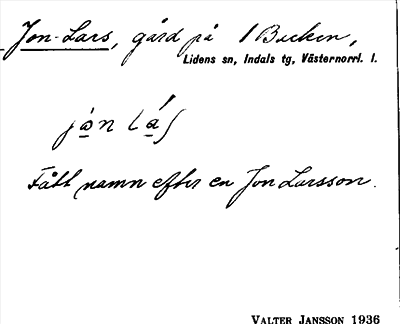 Jon-Lars, gård på /Backen,
Lidens sn, Indals tg, Västernorrl. l.
Fått namn efter en Jon Larsson.
VALTER JANSSON 1936